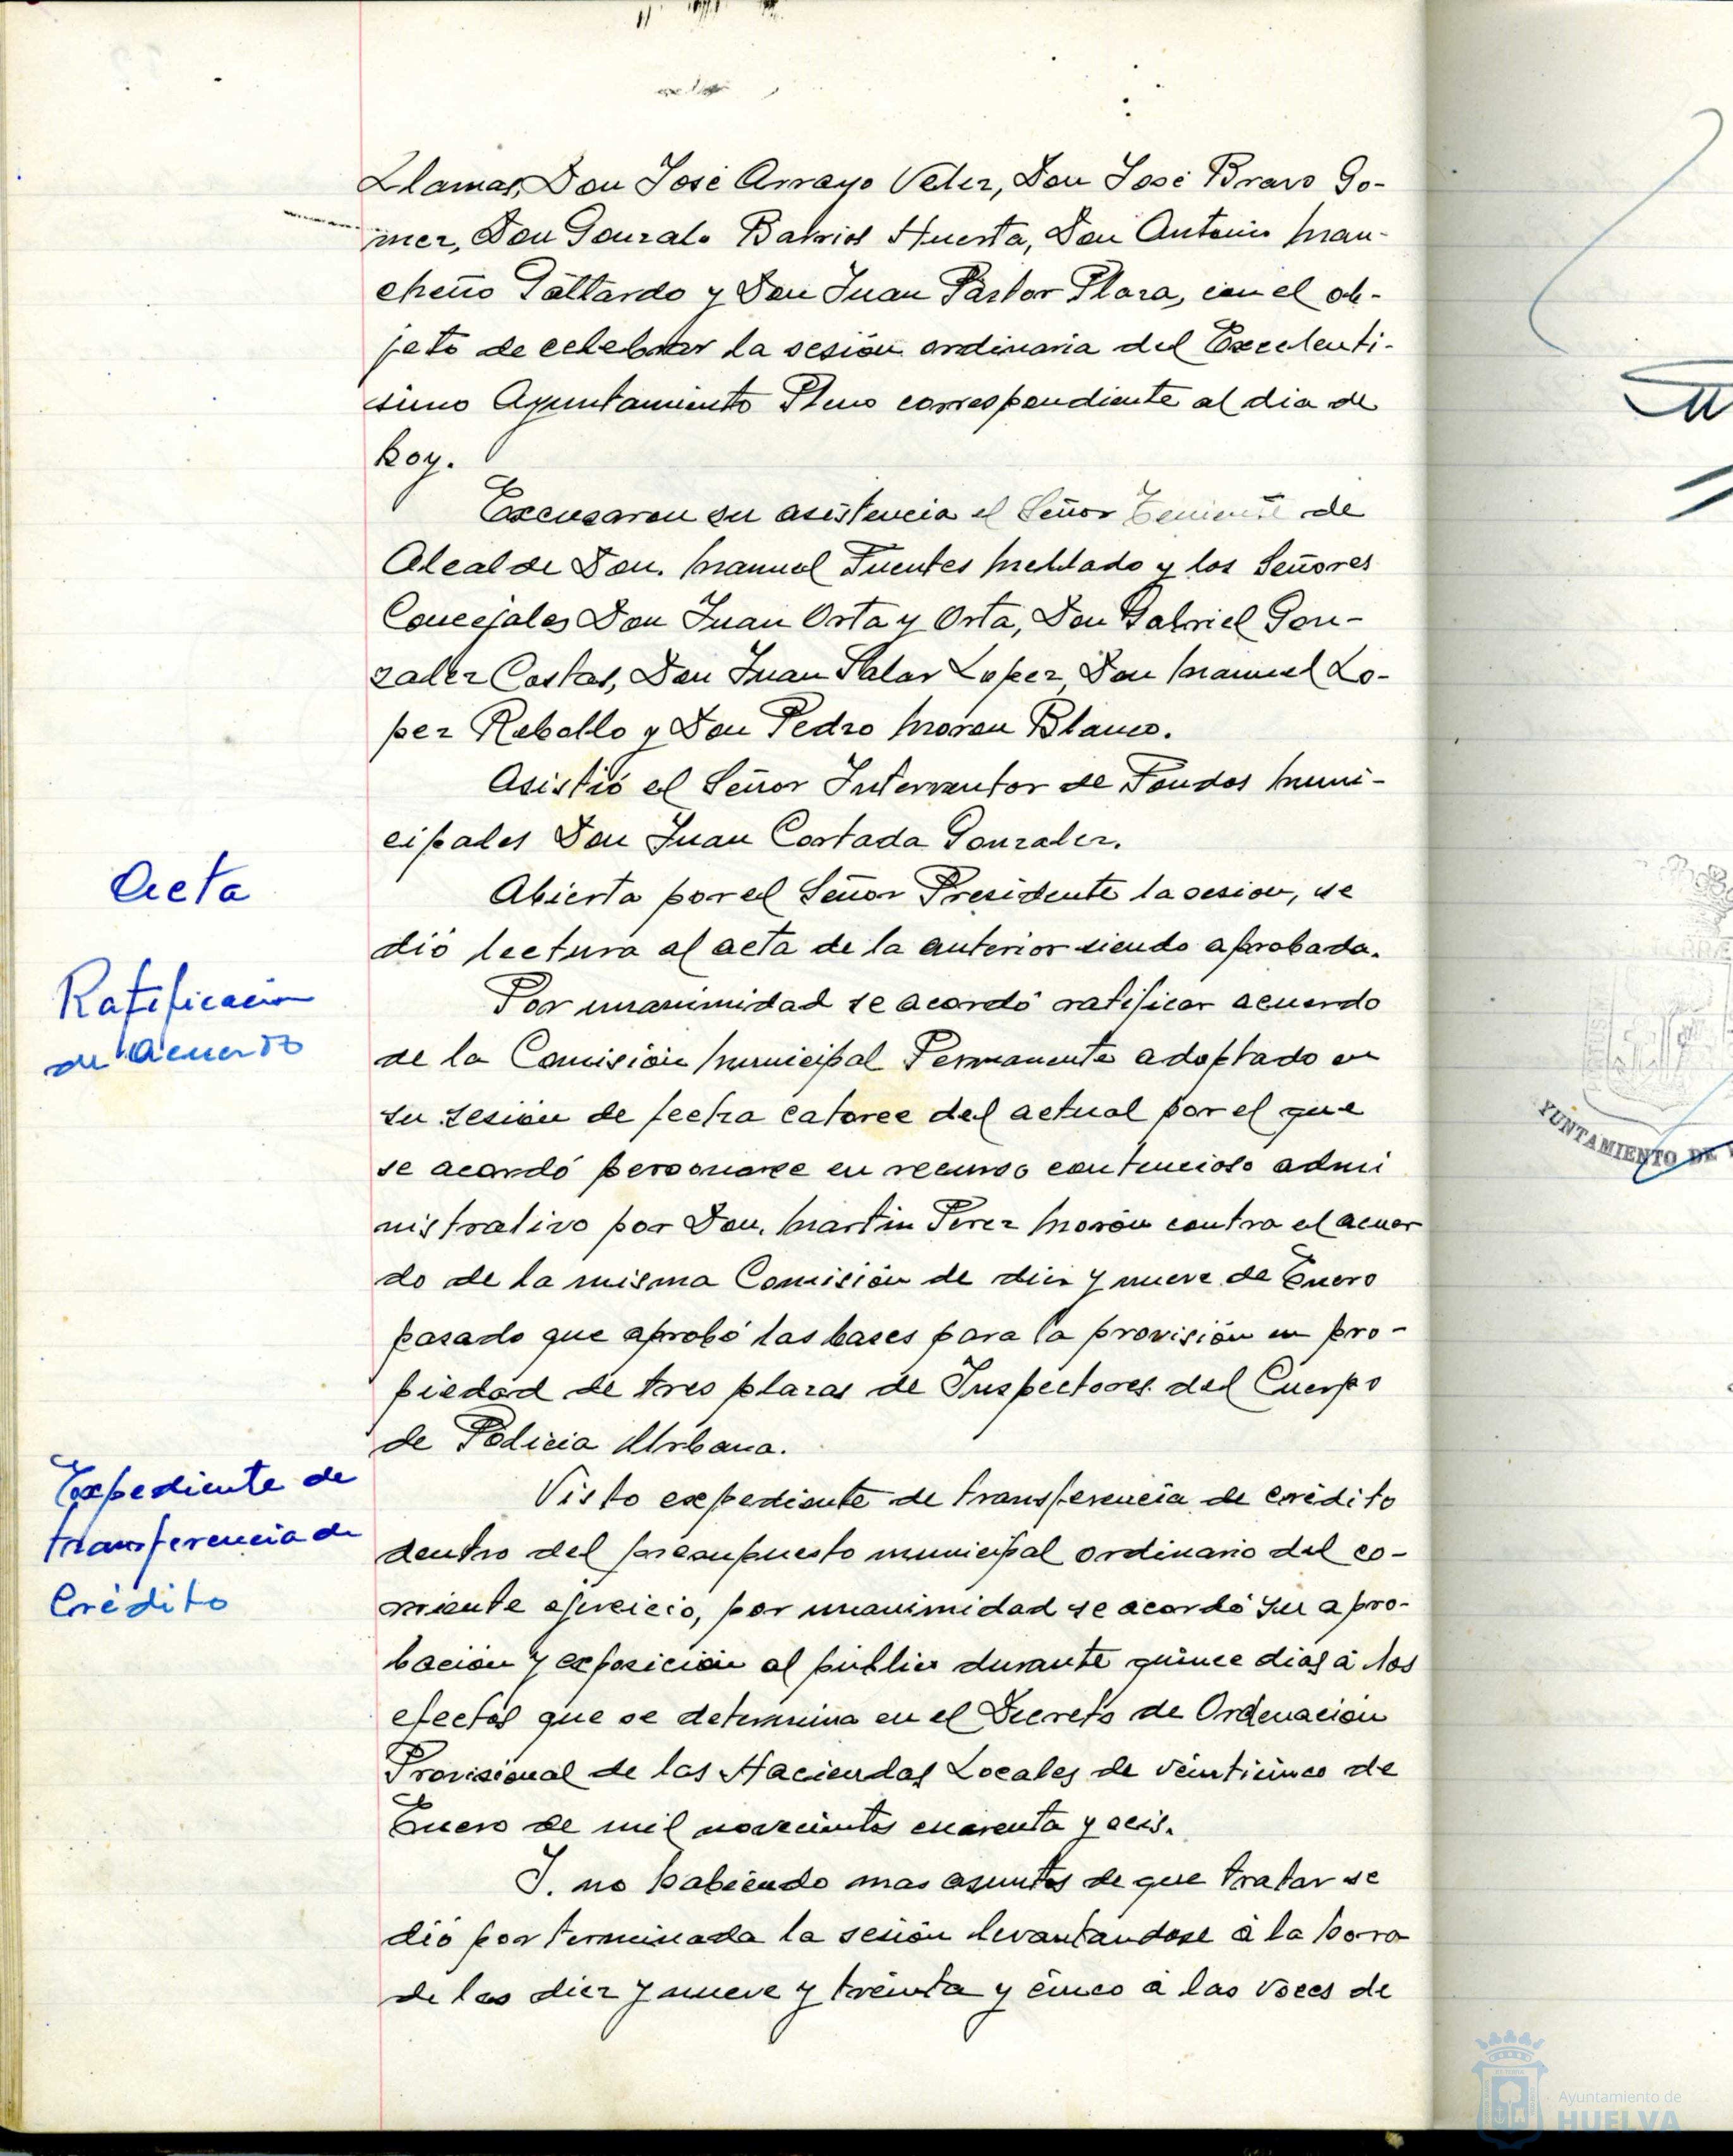 Llamas, Don José Arrayo Velez, Don José Bravo Go-
mez, Don Gonzalo Barrios Huerta, Don Antonio Man-
cheño Gallardo y Don Juan Pastor Plaza, con el ob-
jeto de celebrar la sesión ordinaria del Excelentí-
simo Ayuntamiento Pleno correspondiente al dia de
hoy.
Excusaron su asistencia el Señor Teniente de
Alcalde Don Manuel Fuentes Mellado y los Señores
Concejales Don Juan Orta y Orta, Don Gabriel Gon-
zalez Costas, Don Juan Salas Lopez, Don Manuel Lo-
pez Rebollo y Don Pedro Moron Blanco.
Asistió el Señor Interventor de Fondos Muni-
cipales Don Juan Cortada Gonzalez.
Acta
Abierta por el Señor Presidente la sesion, se
dió lectura al acta de la anterior siendo aprobada.
Ratificacion
de acuerdo
Por unanimidad se acordó ratificar acuerdo
de la Comisión Municipal Permanente adoptado en
su sesion de fecha catorce del actual por el que
se acordó personarse en recurso contencioso admi
nistrativo por Don. Martin Perez Morón contra el acuer
do de la misma Comisión de diez y nueve de Enero
pasado que aprobó las bases para la provisión en pro-
piedad de tres plazas de Inspectores del Cuerpo
de Policia Urbana.
Expediente de
transferencia de
Crédito
Visto expediente de transferencia de crédito
dentro del presupuesto municipal ordinario del co-
rriente ejercicio, por unanimidad se acordó su apro-
bación y exposición al público durante quince dias á los
efectos que se determina en el Decreto de Ordenación
Provisional de las Haciendas Locales de veinticinco de
Enero de mil novecientos cuarenta y seis.
Y. no habiendo mas asuntos de que tratar se
dió por terminada la sesión levantandose á la hora
de las diez y nueve y treinta y cinco á las voces de
YUNTAMIENTO DE
Ayuntamiento de
HUELVA